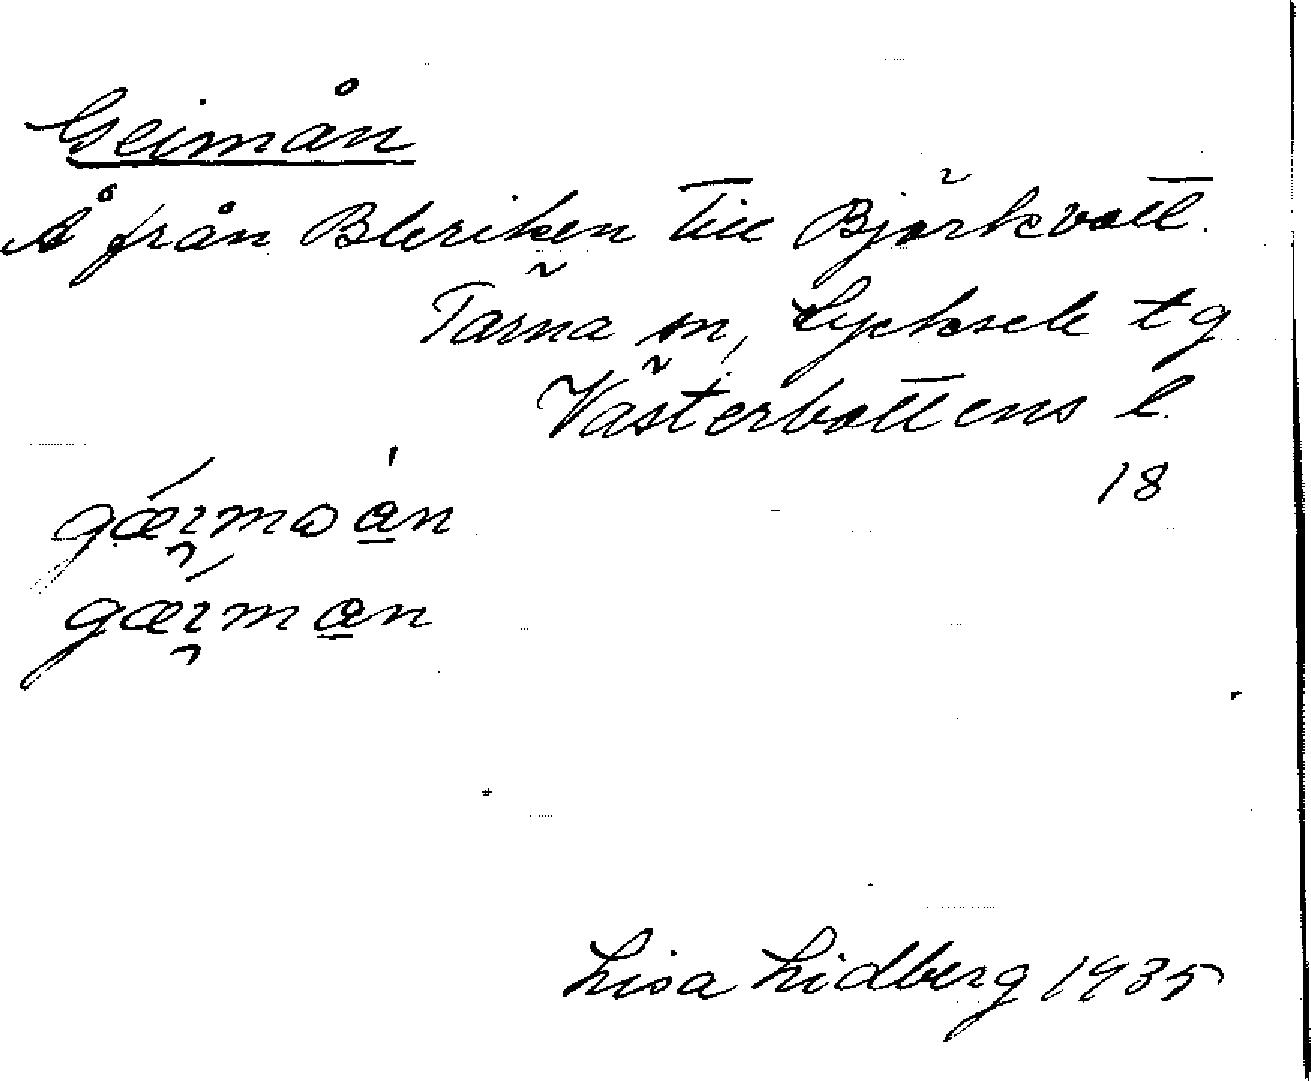 Geimån
Å från Bleriken till Björkvatt.
Tärna sn, Lycksele tg
Västerbottens l.
18
Lisa Lidberg 1935